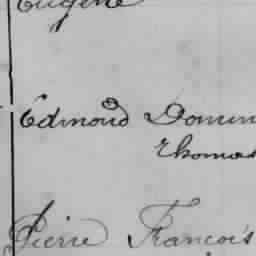 Eugène
Edmond Domin
Thomas
Pierre François